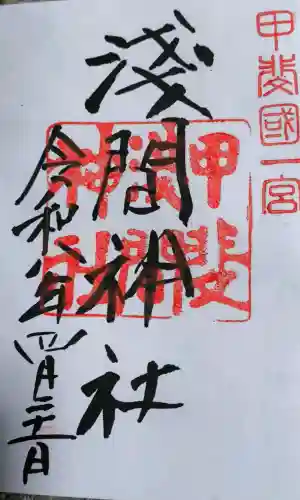 甲斐國一宮
淺間神社
甲斐
淺間
神社
令和
四月
日